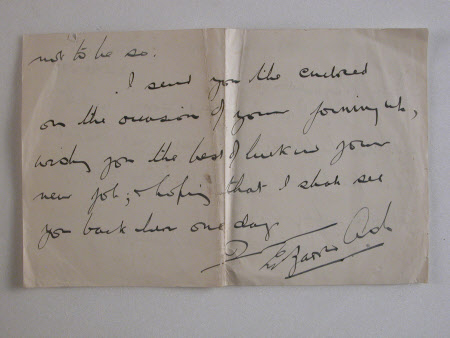 not to be so.
I send you the enclosed
on the occasion of your joining up,
wishing you the best of luck in your
new job; & hoping that I shall see
you back here one day